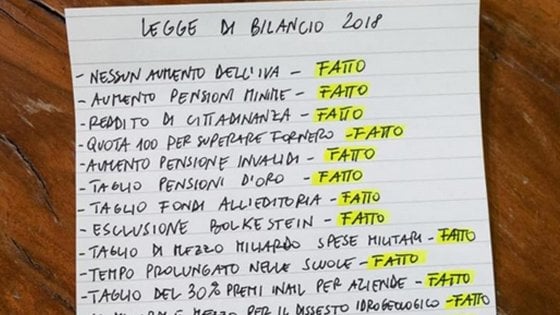 LEGGE DI BILANCIO 2018
- NESSUN AUMENTO DELL'IVA - FATTO
- AUMENTO PENSIONI MINIME - FATTO
- REDDITO DI CITTADINANZA - FATTO
- QUOTA 100 PER SUPERARE FORNERO - FATTO
- AUMENTO PENSIONE INVALIDI - FATTO
- TAGLIO PENSIONI D'ORO - FATTO
- TAGLIO FONDI ALL'EDITORIA - FATTO
- ESCLUSIONE BOLKESTEIN - FATTO
- TAGLIO DI MEZZO MILIARDO SPESE MILITARI - FATTO
- TEMPO PROLUNGATO NELLE SCUOLE - FATTO
- TAGLIO DEL 30% PREMI INAIL PER AZIENDE - FATTO
E MEZZO PER IL DISSESTO IDROGEOLOGICO - FATTO